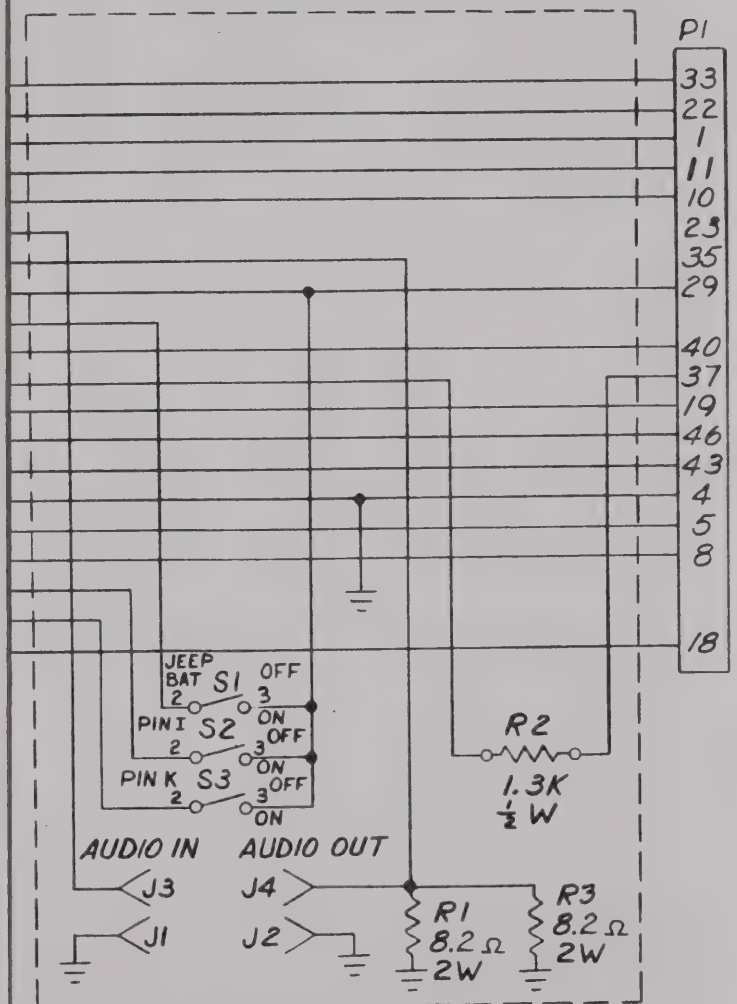 P1
33
22
1
11
10
23
35
29
40
37
19
46
43
4
5
8
18
JEEP
BAT S1 OFF
2 3
ON
PIN I S2 OFF
2 3
ON
PIN K S3 OFF
2 3
ON
R2
1.3K
½ W
AUDIO IN AUDIO OUT
J3 J4
J1 J2
R1
8.2 Ω
2W
R3
8.2 Ω
2W